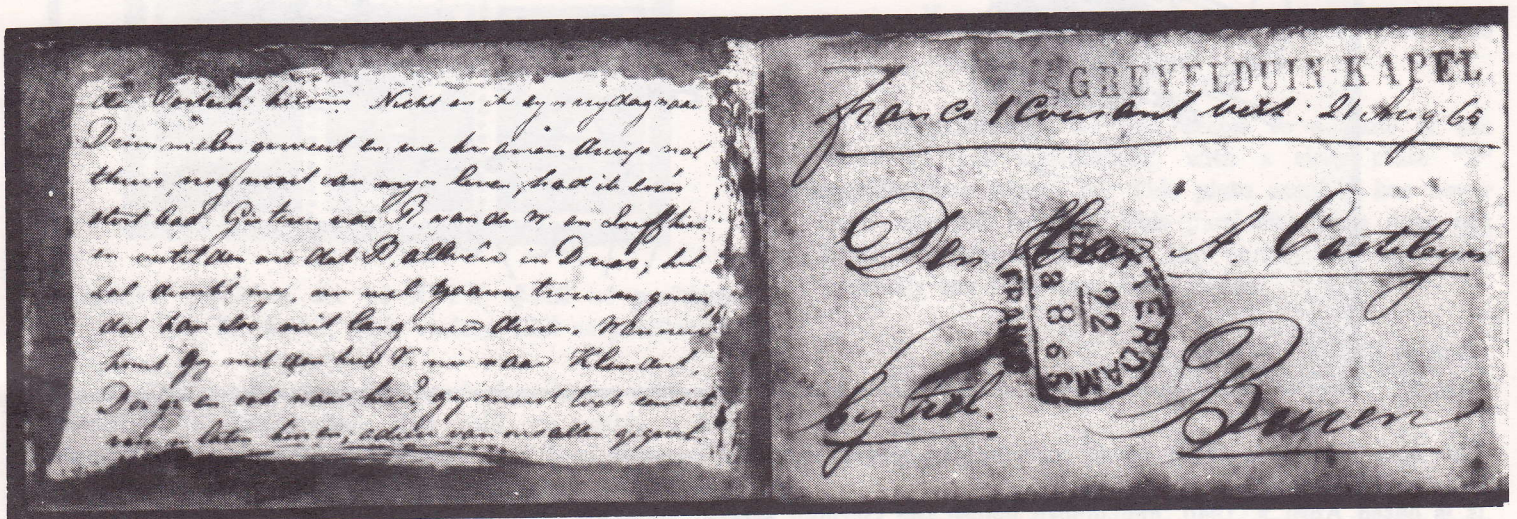 de Oosterh: kermis Nicht en ik zyn vrydag naar
Drimmelen geweest en we kwamen druip nat
thuis, nog nooit van myn leven, had ik zoo'n
stort bad. Gisteren was P. van de W. en Loeff hier
en vertelden ons dat B. alleen in Dus, het
zal me, om wel gaauw trouwen geven,
dat kan zoo, niet lang meer duren. Wanneer
komt gy met den heer V. nu naar Klundert,
Dong en ook naar hier, gy moest toch eens iets
van u laten hooren, adieu van ons allen gegroet.
'S GREVELDUIN-KAPEL
franco 1 Courant verz: 21 Aug: 65.
Den Heer A. Casteleyn
TERDAM
22
8 8 65
FRANCO
by Tiel.
Buren